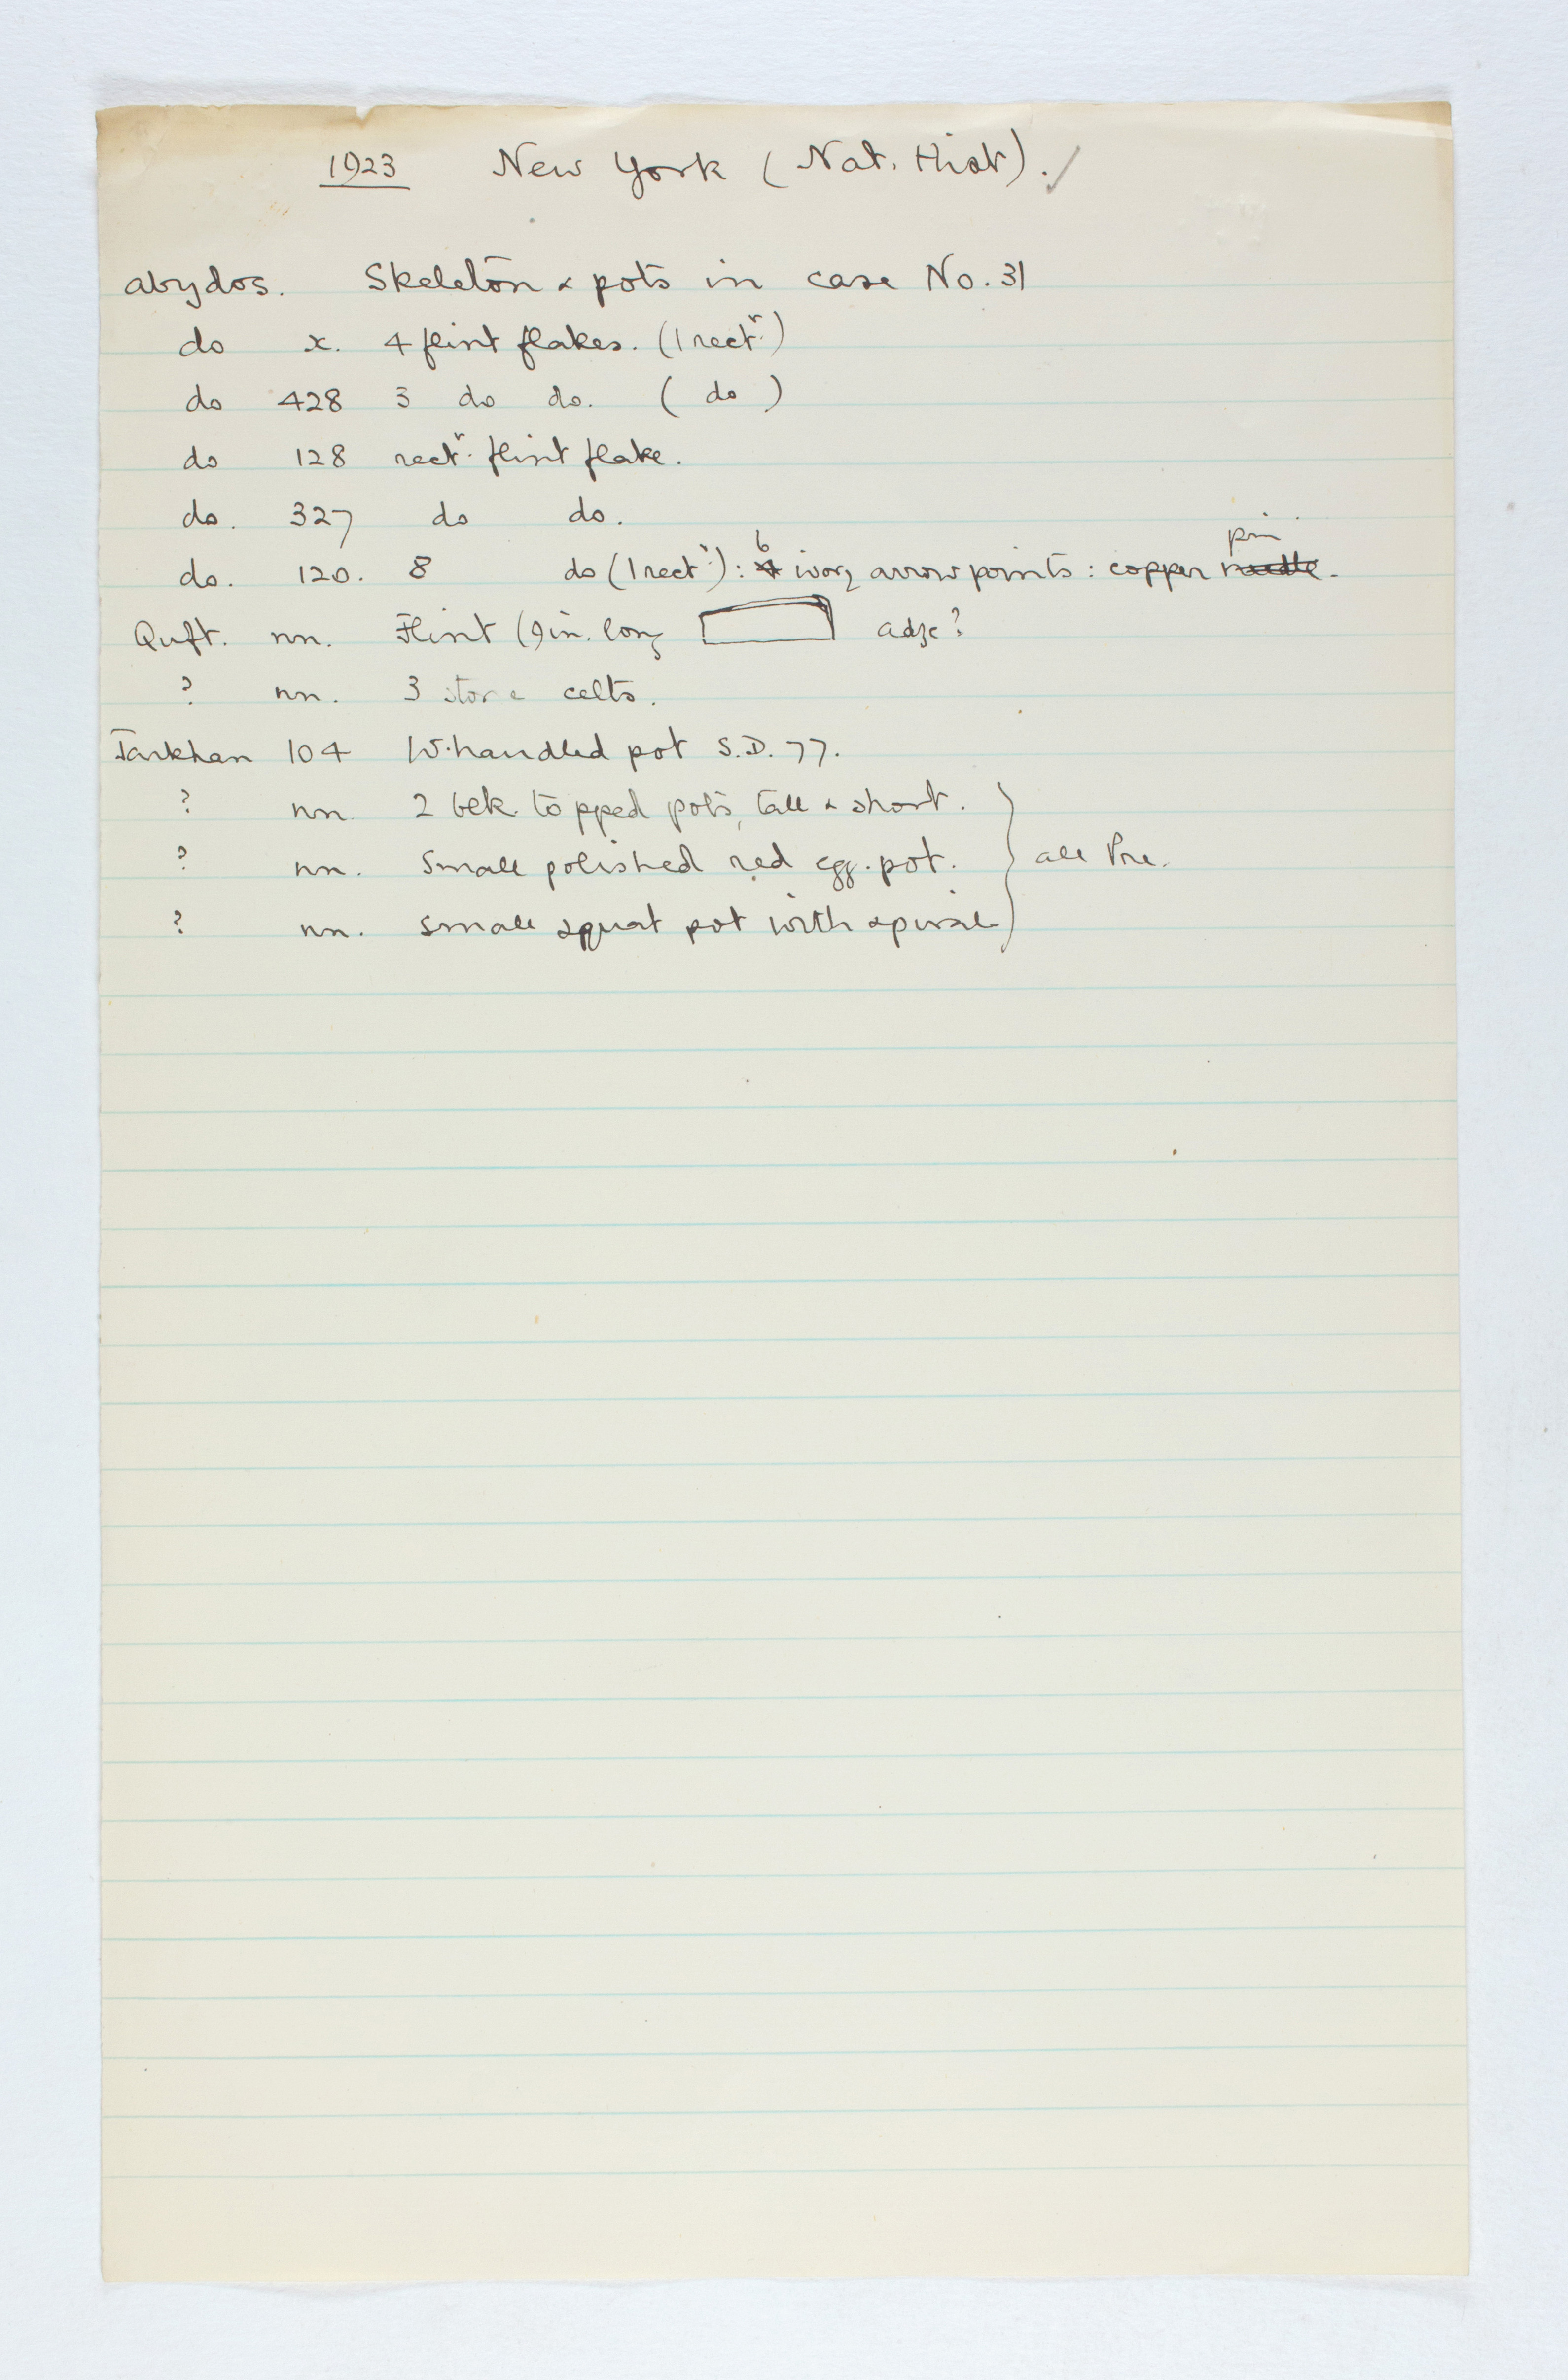 1923 New York (Nat. Hist). ✓
Abydos. Skeleton & pots in case No. 31
do x. 4 flint flakes. (1 rectr.)
do 428 3 do do. ( do )
do 128 rectr. flint flake.
do. 327 do do.
do. 120. 8 do (1 rectr.): 4 6 ivory arrow points: copper needle pin.
Quft. nn. Flint (9 in. long adze?
? nn. 3 stone celts.
Tarkhan 104 W. handled pot S.D. 77.
? nn. 2 blk. topped pots, tall & short.
? nn. Small polished red egg. pot. } all Pre.
? nn. Small squat pot with spirals